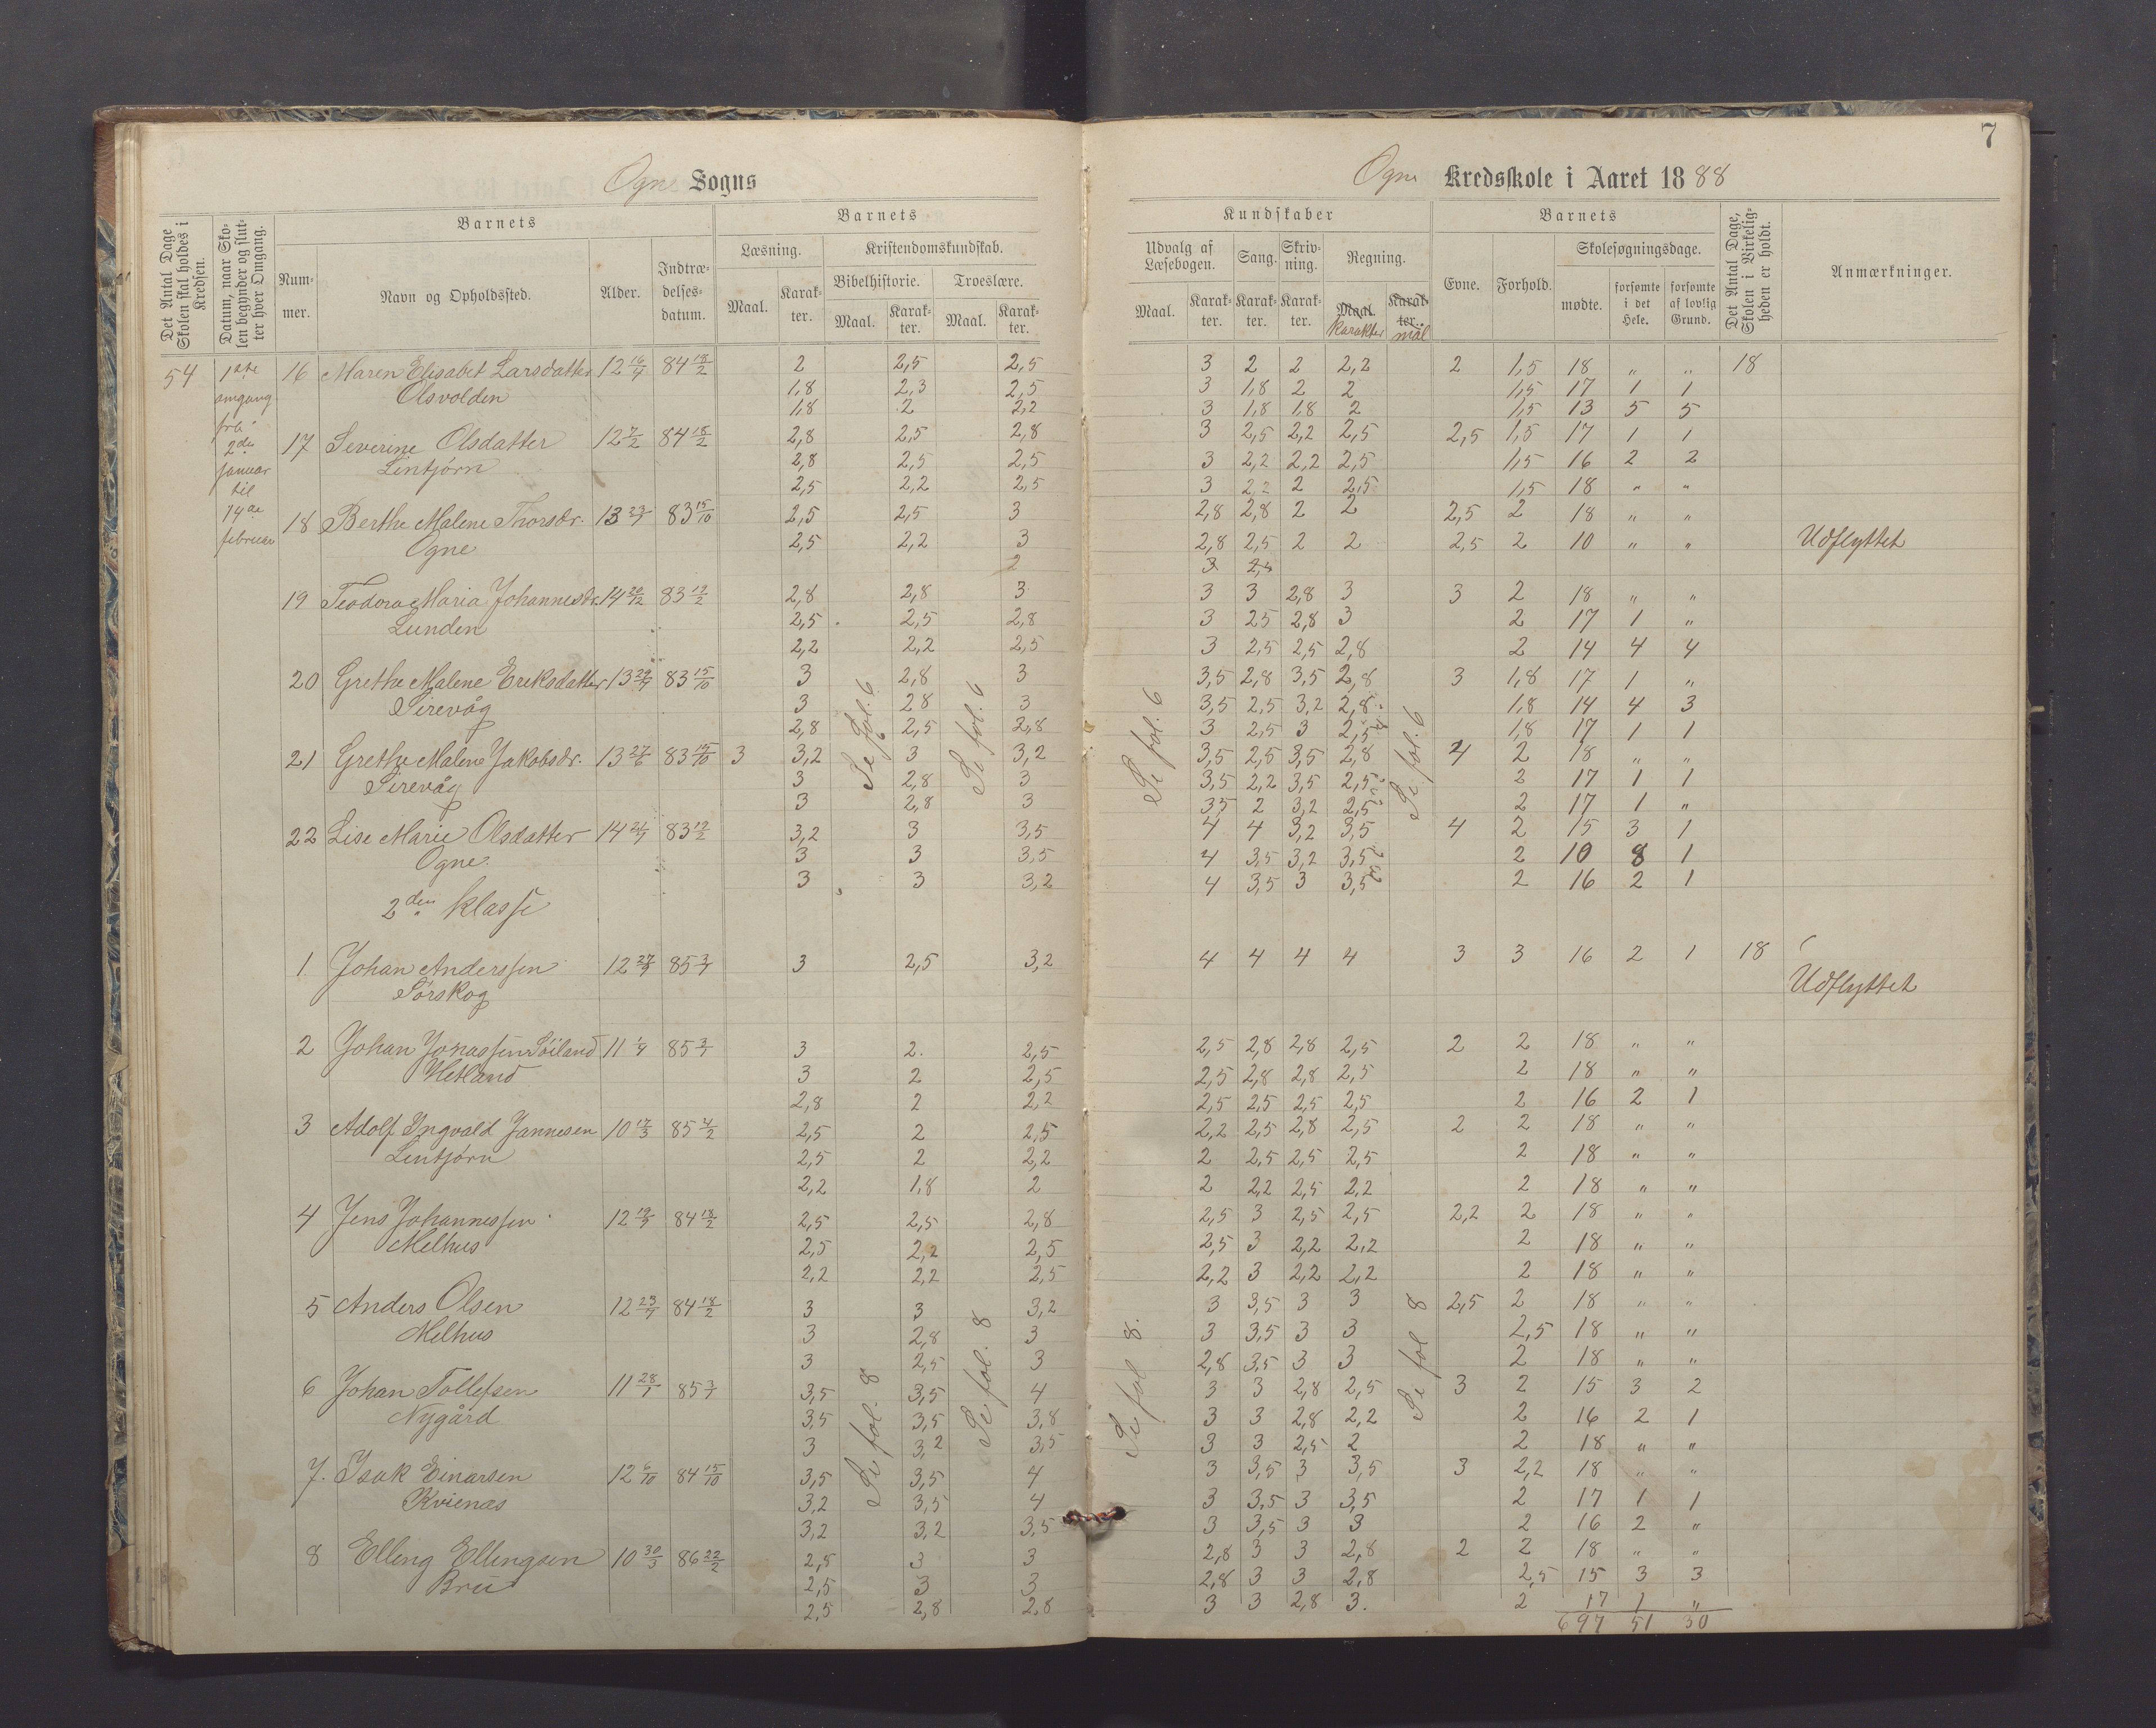 7
Ogne Sogns
Ogne Kredsskole i Aaret 1888
Det Antal Dage Skolen skal holdes i Kredsen.
Datum, naar Skolen begynder og slutter hver Omgang.
Barnets
Nummer.
Navn og Opholdssted.
Alder.
Indtrædelsesdatum.
Barnets
Læsning.
Maal.
Karakter.
Kristendomskundskab.
Bibelhistorie.
Maal.
Karakter.
Troeslære.
Maal.
Karakter.
Kundskaber
Udvalg af Læsebogen.
Maal.
Karakter.
Sang.
Karakter.
Skrivning.
Karakter.
Regning.
Maal. Karakter
Karakter. mål
Barnets
Evne.
Forhold.
Skolesøgningsdage.
mødte.
forsømte i det Hele.
forsømte af lovlig Grund.
Det Antal Dage, Skolen i Virkeligheden er holdt.
Anmærkninger.
54 1ste omgang fra 2den januar til 14de februar
16 Maren Elisabet Larsdatter 12 16/4 84 18/2 2 2,5 2,5 3 2 2 2,2 2 1,5 18 " " 18
Olsvolden 1,8 2,3 2,5 3 1,8 2 2 1,5 17 1 1
1,8 2 2,2 3 1,8 1,8 2 1,5 13 5 5
17 Severine Olsdatter 12 7/2 84 18/2 2,8 2,5 2,8 3 2,5 2,2 2,5 2,5 1,5 17 1 1
Lintjørn 2,8 2,5 2,5 3 2,2 2,2 2,5 1,5 16 2 2
2,5 2,2 2,5 3 2,2 2 2,5 1,5 18 " "
18 Berthe Malene Thorsdr. 83 15/10 2,5 2,5 3 2,8 2,8 2 2 2,5 2 18 " "
Ogne 2,5 2,2 3 2,8 2,5 2 2 2,5 2 10 " " Udflyttet
19 Teodora Maria Johannesdr. 14 20/12 83 12/2 2,8 2,8 3 3 3 2,8 3 3 2 18 " "
Lunden 2,5 2,5 2,8 3 25 2,8 3 2 17 1 "
2,2 2,2 2,5 3 2,5 2,5 2,8 2 14 4 4
20 Grethe Malene Eriksdatter 83 15/10 3 2,8 3 3,5 2,8 3,5 2,8 3 1,8 17 1 "
Sirevåg 3 28 3 3,5 2,5 3,2 2,8 1,8 14 4 3
2,8 2,5 2,8 3 2,5 3 2,5 1,8 17 1 1
21 Grethe Malene Jakobsdr. 13 27/6 83 15/10 3 3,2 3 3,2 3,5 2,5 3,5 2,8 4 2 18 " "
Sirevåg 3 2,8 3 3,5 2,2 3,5 2,5 2 17 1 1
3 2,8 3 3,5 2 3,2 2,5 2 17 1 "
22 Lise Marie Olsdatter 83 12/2 3,2 3 3,5 4 4 3,2 3,5 4 2 15 3 1
Ogne. 3 3 3,5 4 3,5 3,2 3,5 2 10 8 1
3 3 3,2 4 3,5 3 3,5 2 16 2 1
Se fol. 6
Se fol. 6
Se fol. 6
Se fol. 6
2den klasse
1 Johan Anderssen 85 3/1 3 2,5 3,2 4 4 4 4 3 3 16 2 1 18
Sørskog Udflyttet
2 Johan Jonassen Söiland 85 3/1 3 2. 2,5 2,5 2,8 2,8 2,5 2 2 18 " "
Hetland 3 2 2,5 2,5 2,8 2,8 2,5 2 18 " "
2,8 2 2,2 2,5 2,5 2,5 2,5 2 16 2 1
3 Adolf Ingvald Jannesen 10 12/3 85 4/2 2,5 2 2,5 2,2 2,5 2,8 2,5 2 2 18 " "
Lintjørn 2,5 2 2,2 2 2,5 2,5 2,5 2 18 " "
2,2 1,8 2 2 2,2 2,5 2,2 2 18 " "
4 Jens Johannessen 84 18/2 2,5 2,5 2,8 2,5 3 2,5 2,5 2,2 2 18 " "
Melhus 2,5 2,2 2,5 2,5 3 2,2 2,2 2 18 " "
2,2 2,2 2,5 2,2 3 2,2 2,2 2 18 " "
5 Anders Olsen 84 18/2 3 3 3,2 3 3,5 3 3 2,5 2 18 " "
Melhus 3 2,8 3 3 3,5 3 3 2,5 18 " "
3 2,5 3 2,8 3,5 3 3 2 18 " "
6 Johan Tollefsen 11 28/1 85 3/1 3,5 3,5 4 3 3 2,8 2,5 3 2 15 3 2
Nygård 3,5 3,5 3,8 3 3 2,8 2,2 2 16 2 1
3 3,2 3,5 3 3 2,5 2 2 18 " "
7. Isak Einarsen 12 6/10 84 15/10 3,5 3,5 4 3 3,5 3 3,5 3 2,2 18 " "
Kvienæs 3,2 3,5 4 3 3,5 3 3,5 2 17 1 1
3,2 3,2 3,5 3 3,5 3 3 2 16 2 "
8 Elling Ellingsen 10 30/3 86 22/2 2,5 3 3 2,8 3 3 2,8 2 2 18 " "
Bru 2,5 3 3 2,8 3 3 2,8 2,5 15 3 3
2,5 2,8 2,8 3 3 2,8 3. 2 17 1 "
Se fol. 8
Se fol. 8
Se fol 8.
Se fol 8
697 51 30